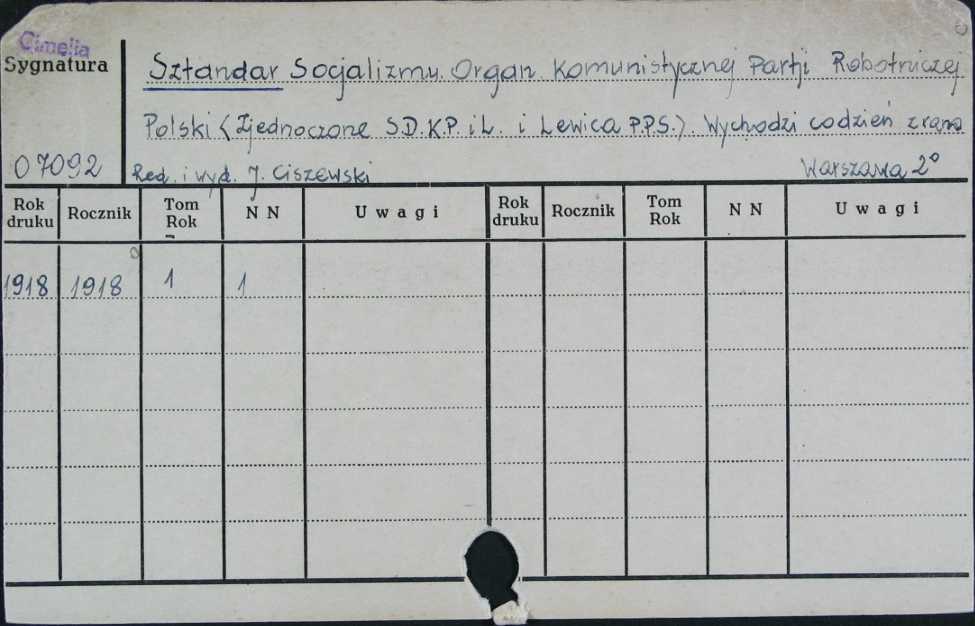 Cimelia
Sygnatura
Sztandar Socjalizmu. Organ Komunistycznej Partji Robotniczej
Polski (Zjednoczone S.D.K.P. i L. i Lewica P.P.S.). Wychodzi codzień zrana
07092 Red. i wyd. J. Ciszewski Warszawa 2°
Rok druku Rocznik Tom Rok N N Uwagi Rok druku Rocznik Tom Rok N N Uwagi
1918 1918 1 1